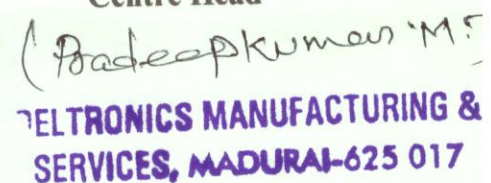 Centre Head
(Pradeepkumar M.)
ELTRONICS MANUFACTURING &
SERVICES, MADURAI-625 017